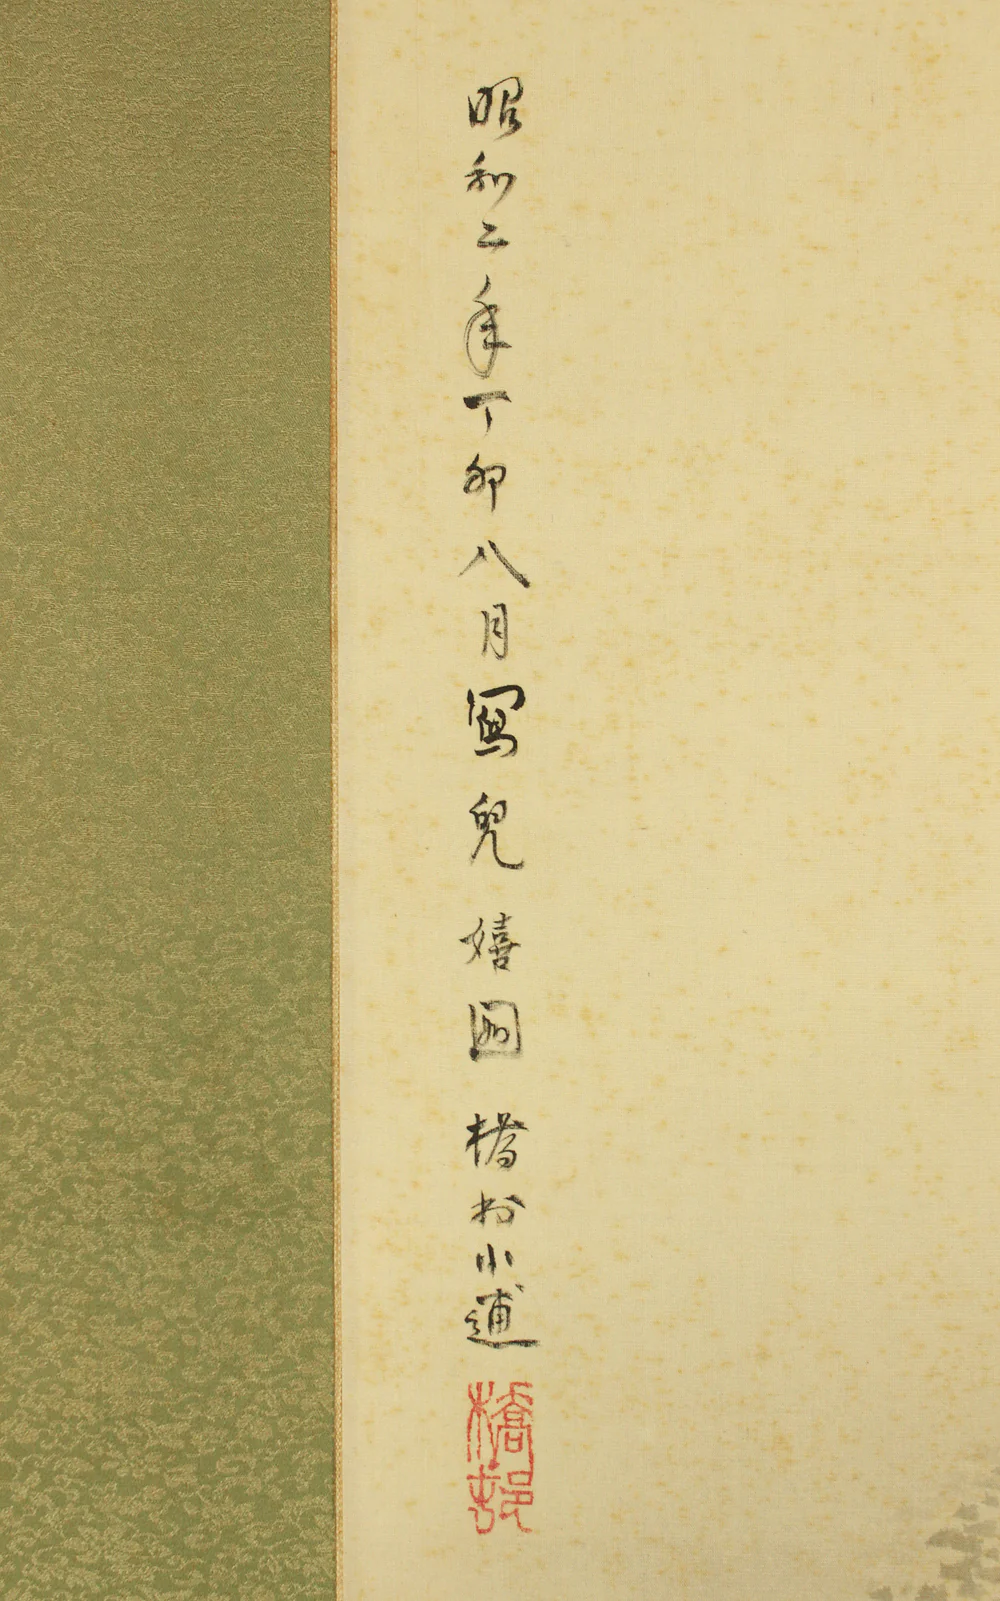 昭和二年丁卯八月寫兒嬉圖 橋村小逋
橋邨